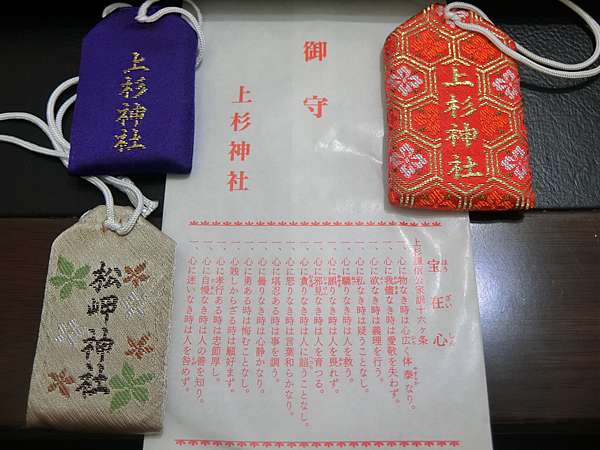 上杉神社
松岬神社
御守
上杉神社
上杉神社
宝在心
上杉謙信公家訓十六ヶ条
一、心に物なき時は心広く体泰なり。
一、心に我儘なき時は愛敬を失わず。
一、心に欲なき時は義理を行う。
一、心に私なき時は疑うことなし。
一、心に驕りなき時は人を敬う。
一、心に誤りなき時は人を畏れず。
一、心に邪見なき時は人を育つる。
一、心に貪りなき時は人に諂うことなし。
一、心に怒りなき時は言葉和らかなり。
一、心に堪忍ある時は事を調う。
一、心に曇りなき時は心静かなり。
一、心に勇ある時は悔むことなし。
一、心賤しからざる時は願好まず。
一、心に孝行ある時は忠節厚し。
一、心に自慢なき時は人の善を知り。
一、心に迷いなき時は人を咎めず。